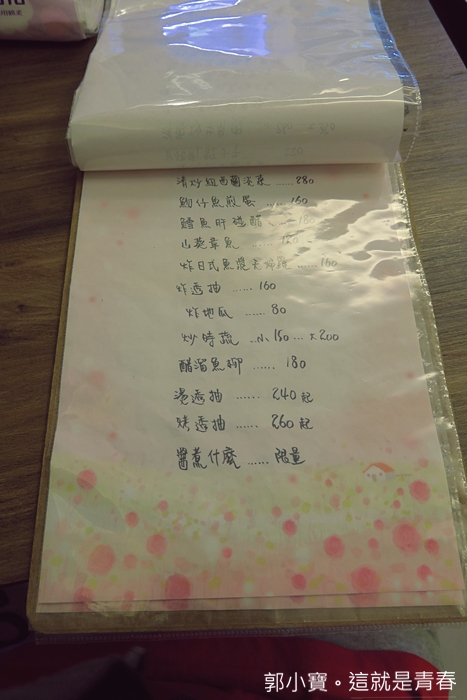 清炒紐西蘭淡菜 ...... 280
魩仔魚煎蛋 ...... 160
鱈魚肝碰醋 ...... 180
山葵章魚 ......
炸日式魚漿 ...... 160
炸透抽 ...... 160
炸地瓜 ...... 80
炒時蔬 ..小150 ... 大200
醋溜魚柳 ...... 180
燙透抽 ...... 240起
烤透抽 ...... 260起
醬煮什麼 ...... 限量
郭小寶。這就是青春